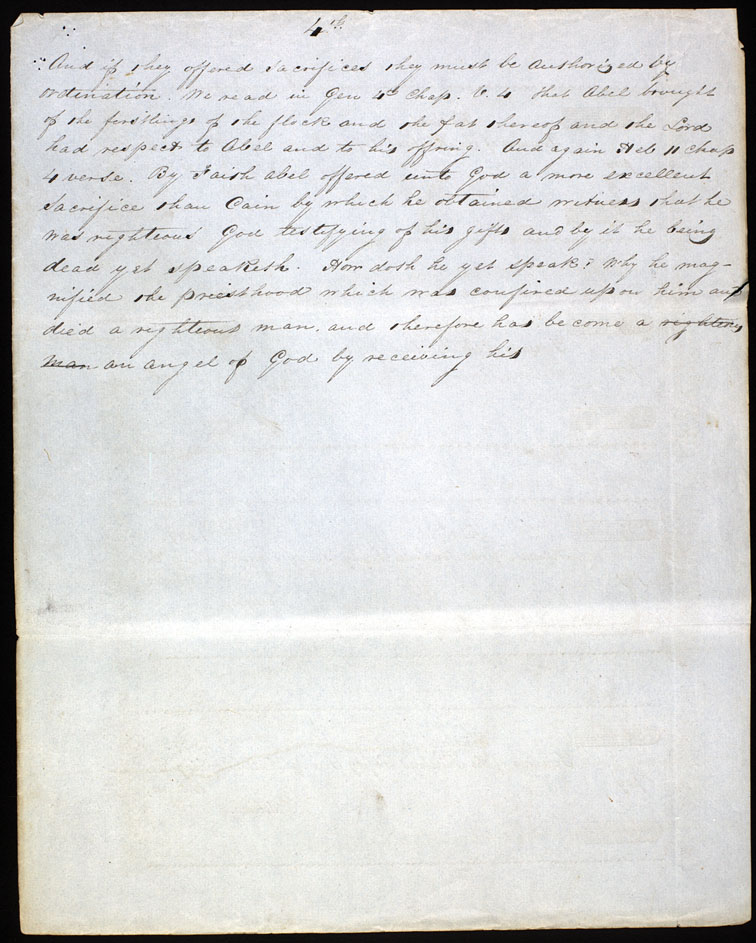 4th
And if they offered sacrifices they must be authorized by
ordination. We read in Gen 4th Chap. V. 4 that Abel brought
of the firstlings of the flock and the fat thereof and the Lord
had respect to Abel and to his offring. And again Heb 11 chap
4 verse. By Faith abel offered unto God a more excellent
Sacrifice than Cain by which he obtained witness that he
was righteous God testifying of his gifts and by it he being
dead yet speaketh. How doth he yet speak? Why he mag-
nified the priesthood which was confired upon him and
died a righteous man. and therefore has become a righteous
man an angel of God by receiving his